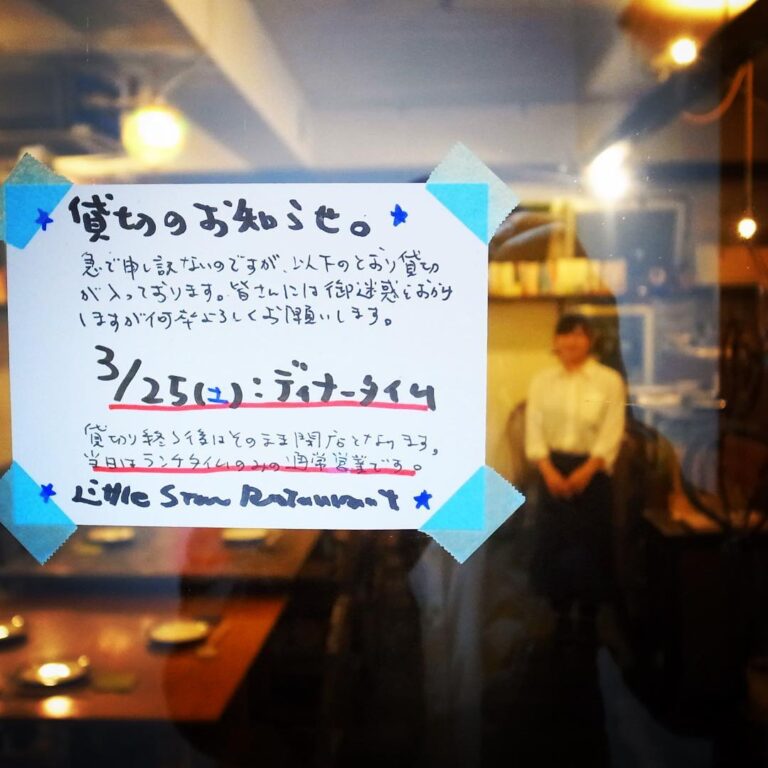 貸切のお知らせ。
急で申し訳ないのですが、以下のとおり貸切
が入っております。皆さんには御迷惑をおかけ
しますが何卒よろしくお願いします。
3/25(土):ディナータイム
貸切り終了後はそのまま閉店となります。
当日はランチタイムのみの通常営業です。
Little Star Restaurant